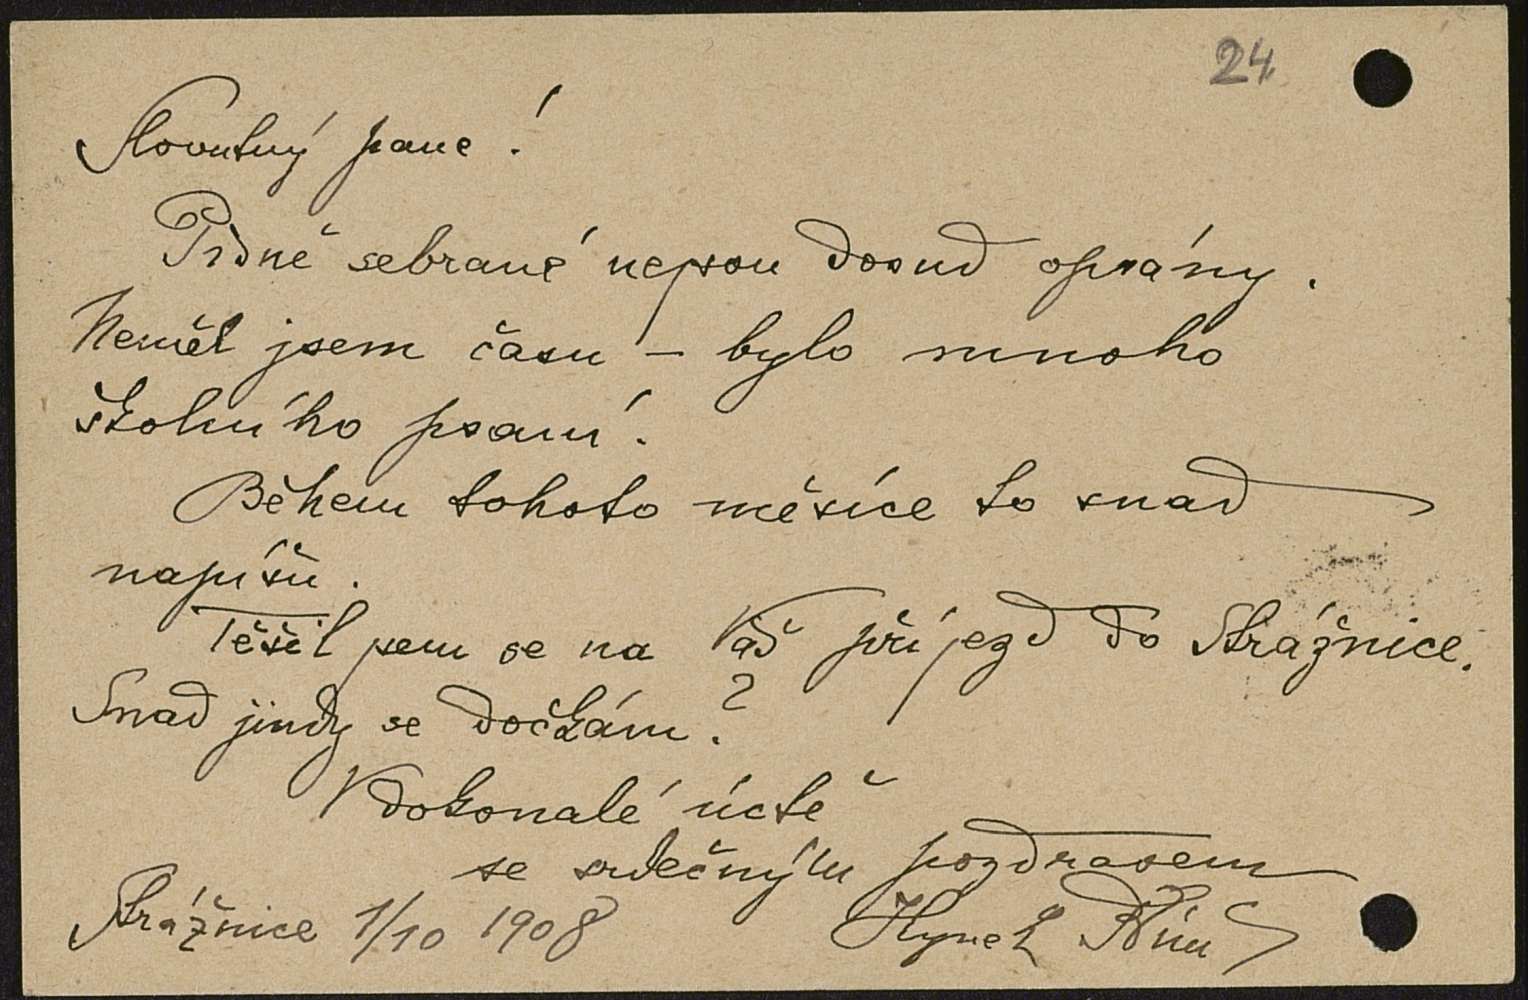 24
Slovutný pane!
Písně sebrané nejsou dosud opsány.
Neměl jsem času – bylo mnoho
školního psaní.
Během tohoto měsíce to snad
napíšu.
Těšil jsem se na Váš příjezd do Strážnice.
Snad jindy se dočkám?
V dokonalé úctě
se srdečným pozdravem
Strážnice 1/10 1908 Hynek